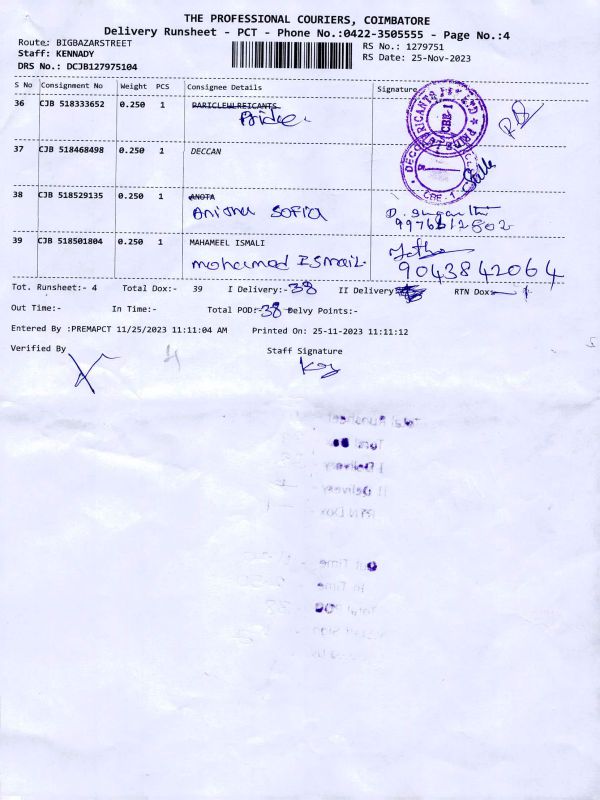 THE PROFESSIONAL COURIERS, COIMBATORE
Delivery Runsheet - PCT - Phone No.:0422-3505555 - Page No.:4
Route: BIGBAZARSTREET
RS No.: 1279751
Staff: KENNADY
RS Date: 25-Nov-2023
DRS No.: DCJB127975104
S No Consignment No Weight PCS Consignee Details Signature
36 CJB 518333652 0.250 1
37 CJB 518468498 0.250 1 DECCAN
CBE-1
38 CJB 518529135 0.250 1 ANOTA
Anisha Sofia
39 CJB 518501804 0.250 1 MAHAMEEL ISMALI
mohamed ISmail.
9043842064
Tot. Runsheet:- 4 Total Dox:- 39 I Delivery:-38 II Delivery RTN Dox:- 1
Out Time:- In Time:- Total POD:-38 Delvy Points:-
Entered By :PREMAPCT 11/25/2023 11:11:04 AM Printed On: 25-11-2023 11:11:12
Verified By Staff Signature